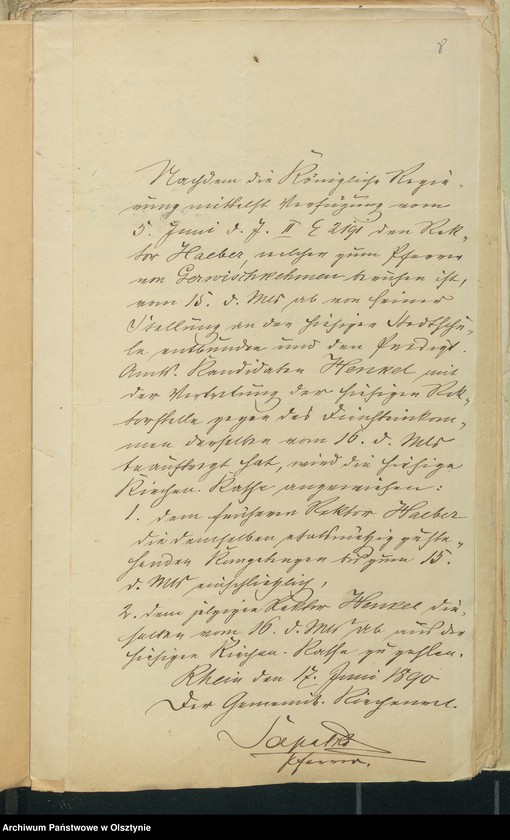 8
Nachdem die Königliche Regie-
rung mittelst Verfügung vom
5. Juni d. J. II 2191 den Rek-
tor Haeber, welcher zum Pfarrer
von Gerwischkehmen berufen ist,
vom 15. d. Mts ab von seiner
Stellung an der hiesigen Stadtschu-
le entbunden und den Predigt-
Amts-Kandidaten Henkel mit
der Vertretung der hiesigen Rek-
torstelle gegen das Diensteinkom-
men derselben vom 16. d. Mts
beauftragt hat, wird die hiesige
Kirchen-Kasse angewiesen:
1. dem früheren Rektor Haeber
die demselben etatsmäßig zuste-
henden Kompetenzen bis zum 15.
d. Mts einschließlich,
2. dem jetzigen Rektor Henkel die-
selben vom 16. d. Mts ab aus der
hiesigen Kirchen-Kasse zu zahlen.
Rhein den 17. Juni 1890
Der Gemeinde-Kirchenrat.
Pfarrer.
Archiwum Państwowe w Olsztynie